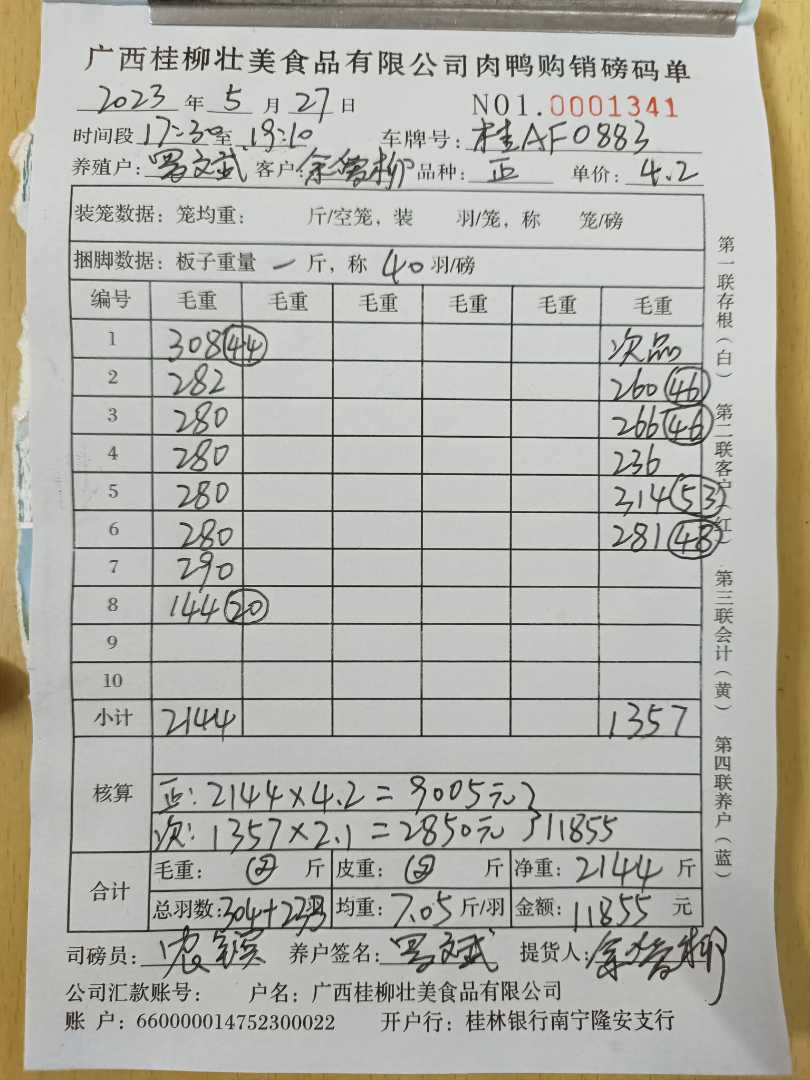 广西桂柳壮美食品有限公司肉鸭购销磅码单
2023 年 5 月 27 日 NO1.0001341
时间段 17:30 至 19:10 车牌号: 桂AF0883
养殖户: 罗文斌 客户: 品种: 正 单价: 4.2
装笼数据: 笼均重: 斤/空笼, 装 羽/笼, 称 笼/磅
捆脚数据: 板子重量 一 斤, 称 40 羽/磅
编号 毛重 毛重 毛重 毛重 毛重 毛重
1 308 (44) 次品
2 282 260 (46)
3 280 266 (46)
4 280 236
5 280 314 (53)
6 280 281 (48)
7 290
8 144 (20)
9
10
小计 2144 1357
核算
正: 2144×4.2=9005元
次: 1357×2.1=2850元 } 11855
合计
毛重: 斤 皮重: 斤 净重: 2144 斤
总羽数: 304+233 羽 均重: 7.05 斤/羽 金额: 11855 元
司磅员: 养户签名: 罗文斌 提货人:
公司汇款账号: 户名: 广西桂柳壮美食品有限公司
账 户: 660000014752300022 开户行: 桂林银行南宁隆安支行
第一联存根(白) 第二联客户(红) 第三联会计(黄) 第四联养户(蓝)